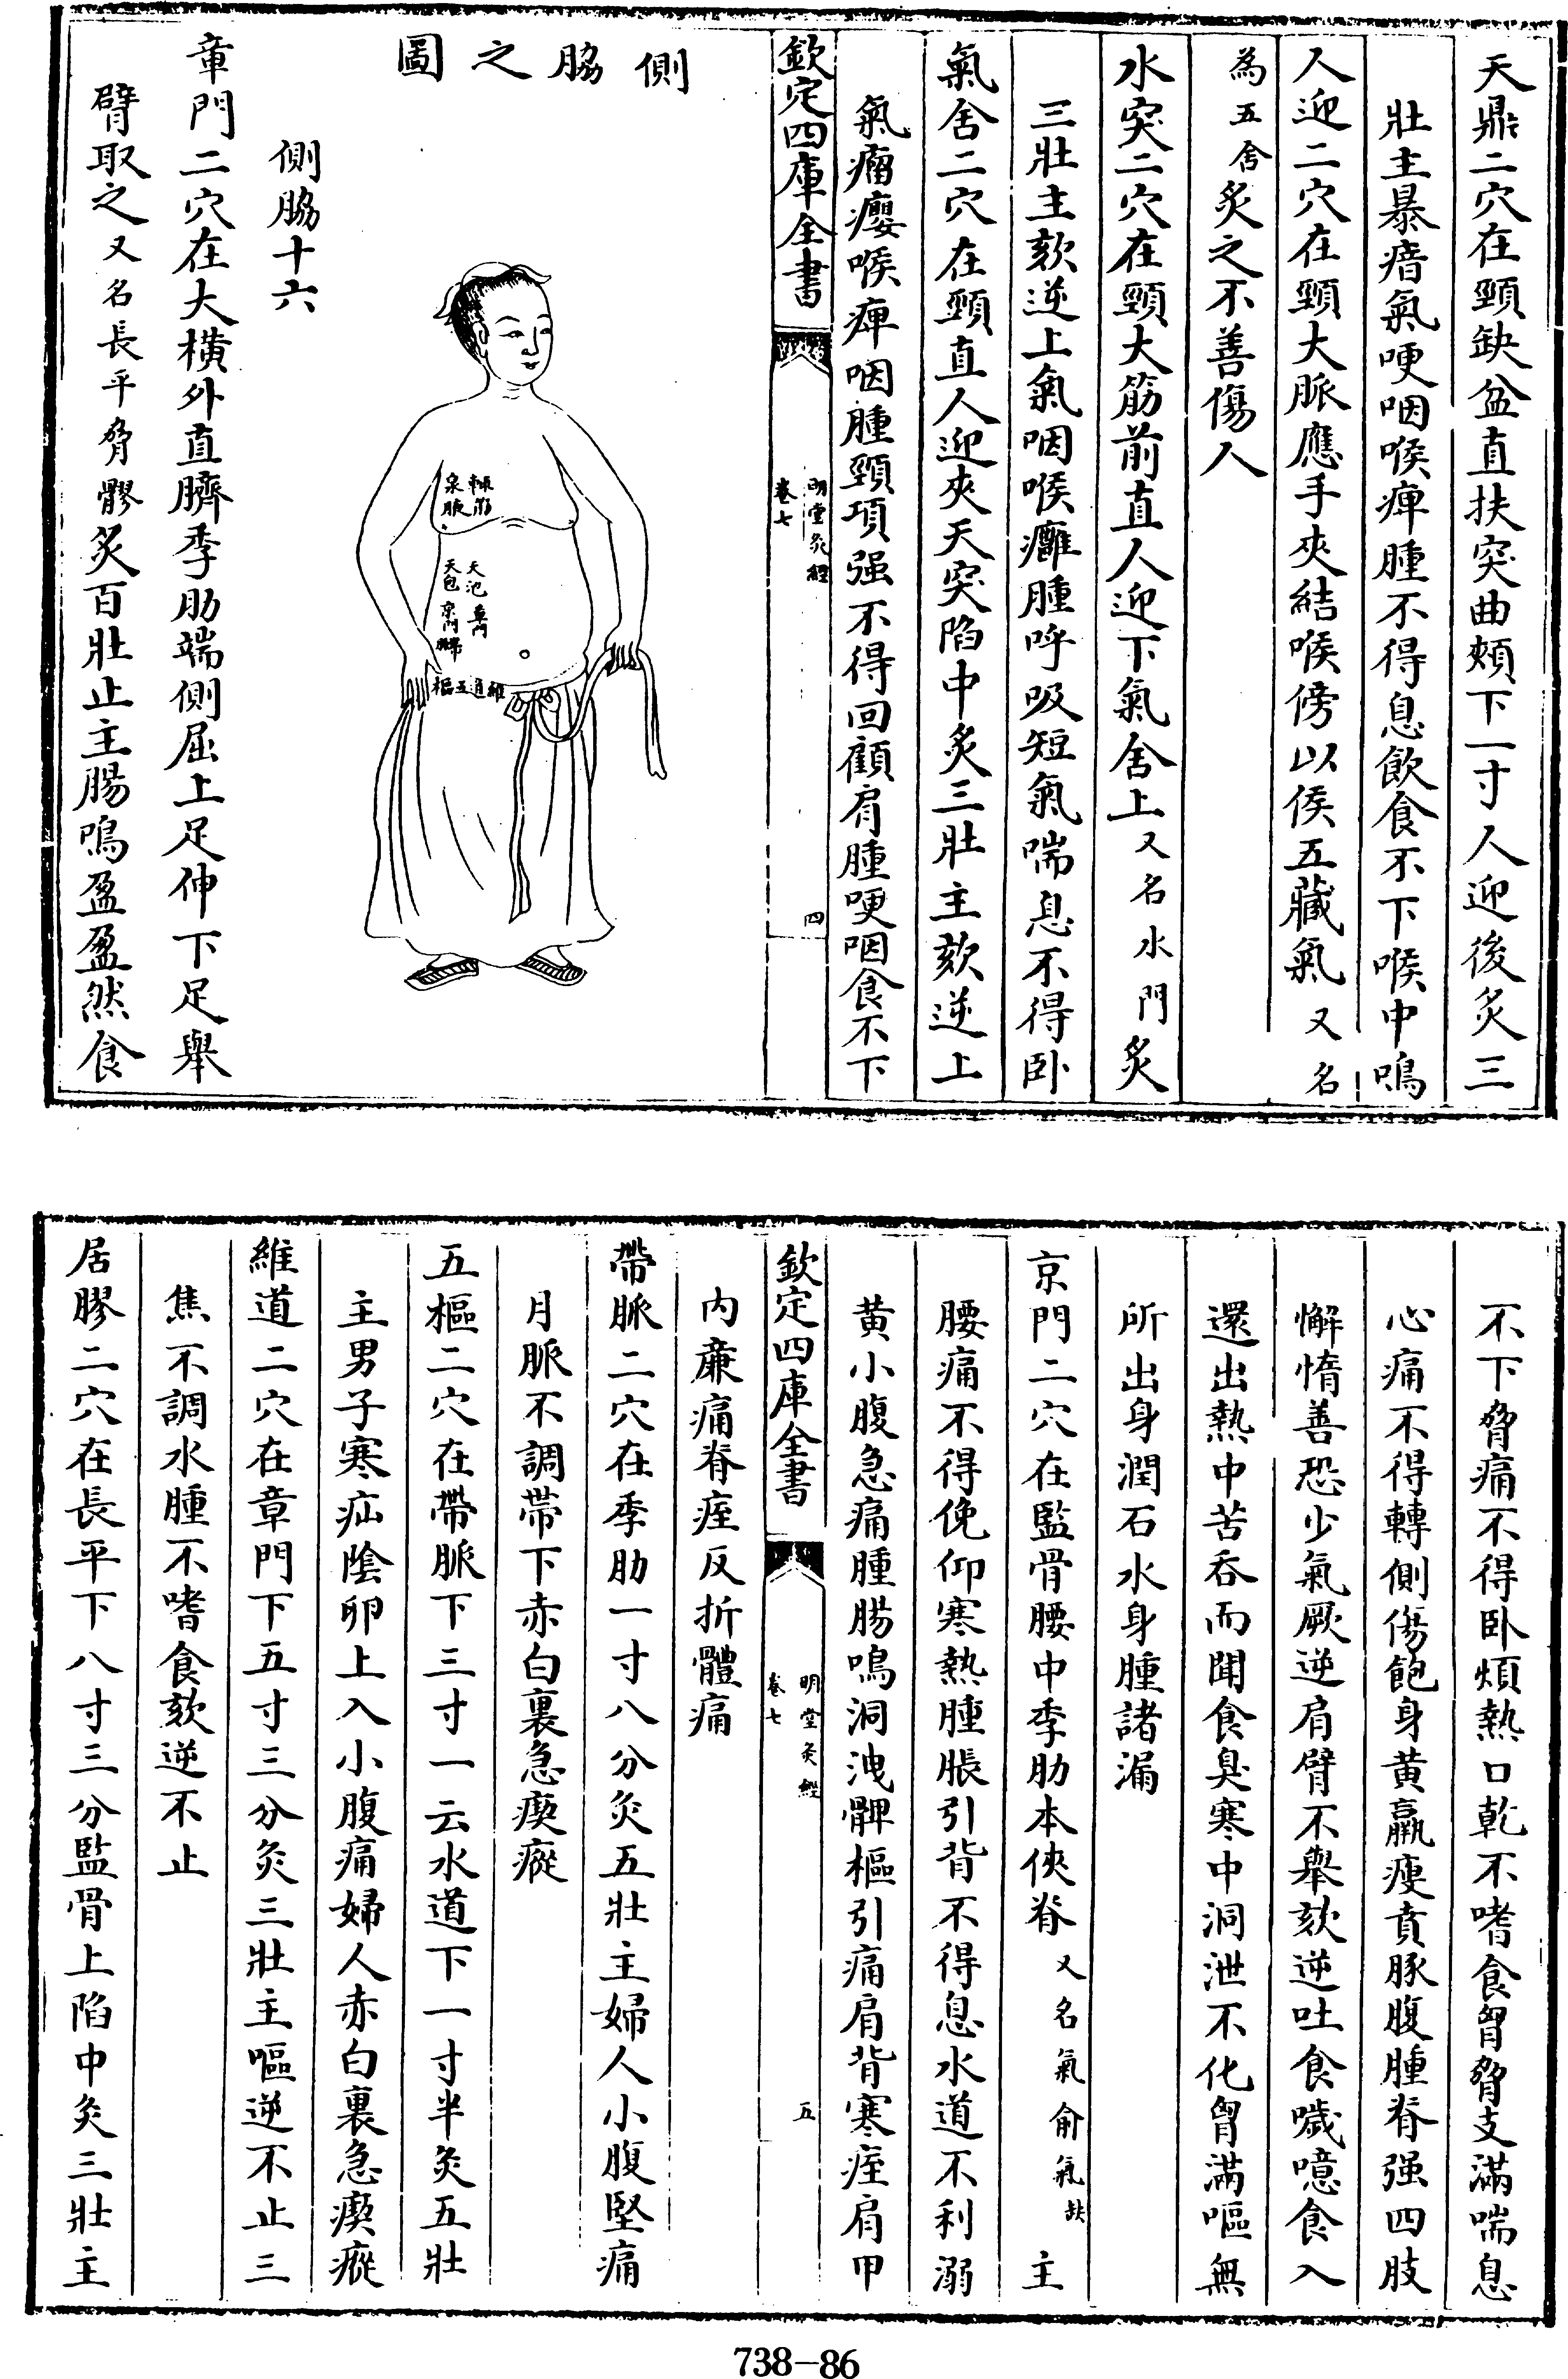 天鼎二穴在頸缺盆直扶突曲頰下一寸人迎後炙三
壯主暴瘖氣哽咽喉痺腫不得息飲食不下喉中鳴
人迎二穴在頸大脈應手夾結喉傍以侯五藏氣又名
為五舍炙之不善傷人
水突二穴在頸大筋前直人迎下氣舍上又名水門炙
三壯主欬逆上氣咽喉癰腫呼吸短氣喘息不得卧
氣舍二穴在頸直人迎夾天突陷中炙三壯主欬逆上
氣瘤癭喉痺咽腫頸項强不得回顧肩腫哽咽食不下
欽定四庫全書
明堂灸經
卷七
四
側脇之圖
輒筋
泉腋
天池
天包
章門
京門
帶脈
維道
五樞
側脇十六
章門二穴在大橫外直臍季肋端側屈上足伸下足舉
臂取之又名長平脅髎炙百壯止主腸鳴盈盈然食
不下脅痛不得卧煩熱口乾不嗜食胷脅支滿喘息
心痛不得轉側傷飽身黄羸瘦賁豚腹腫脊强四肢
懈惰善恐少氣厥逆肩臂不舉欬逆吐食噦噫食入
還出熱中苦吞而聞食臭寒中洞泄不化胷滿嘔無
所出身潤石水身腫諸漏
京門二穴在監骨腰中季肋本俠脊又名氣俞氣缺主
腰痛不得俛仰寒熱腫脹引背不得息水道不利溺
黄小腹急痛腫腸鳴洞洩髀樞引痛肩背寒痓肩甲
欽定四庫全書
明堂灸經
卷七
五
内亷痛脊痓反折體痛
帶脈二穴在季肋一寸八分灸五壯主婦人小腹堅痛
月脈不調帶下赤白裏急瘈瘲
五樞二穴在帶脈下三寸一云水道下一寸半灸五壯
主男子寒疝陰卵上入小腹痛婦人赤白裏急瘈瘲
維道二穴在章門下五寸三分灸三壯主嘔逆不止三
焦不調水腫不嗜食欬逆不止
居膠二穴在長平下八寸三分監骨上陷中灸三壯主
738-86